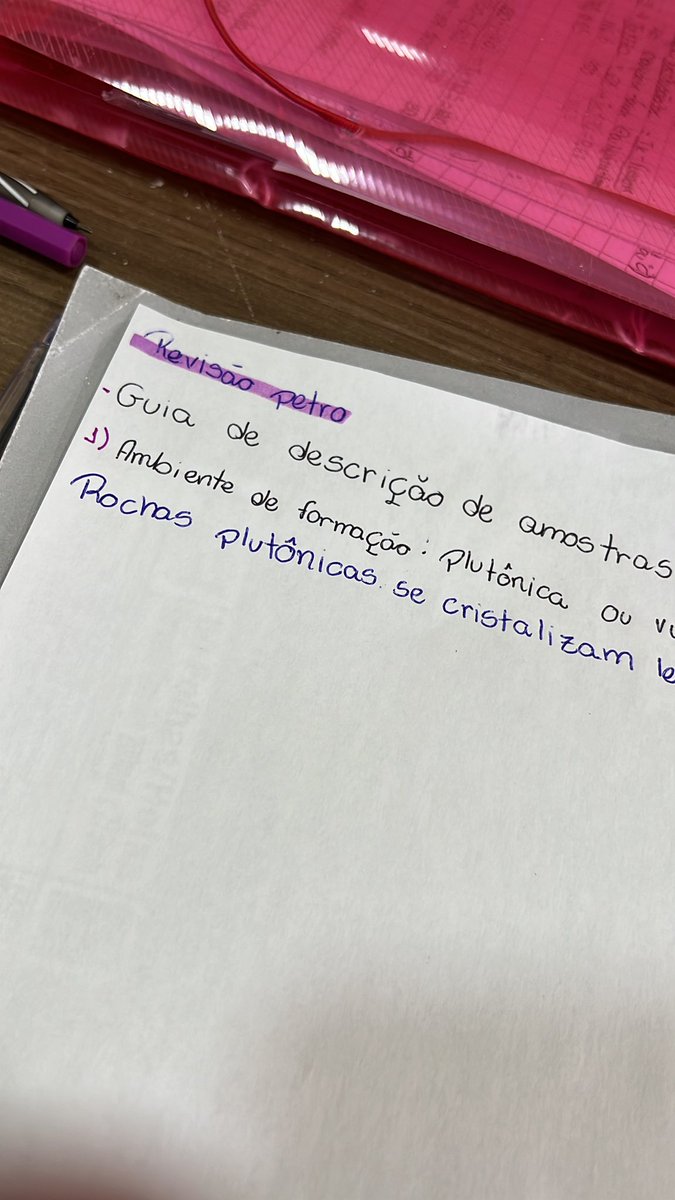 Revisão petro
- Guia de descrição de amostras
1) Ambiente de formação: Plutônica ou
Rochas plutônicas se cristalizam